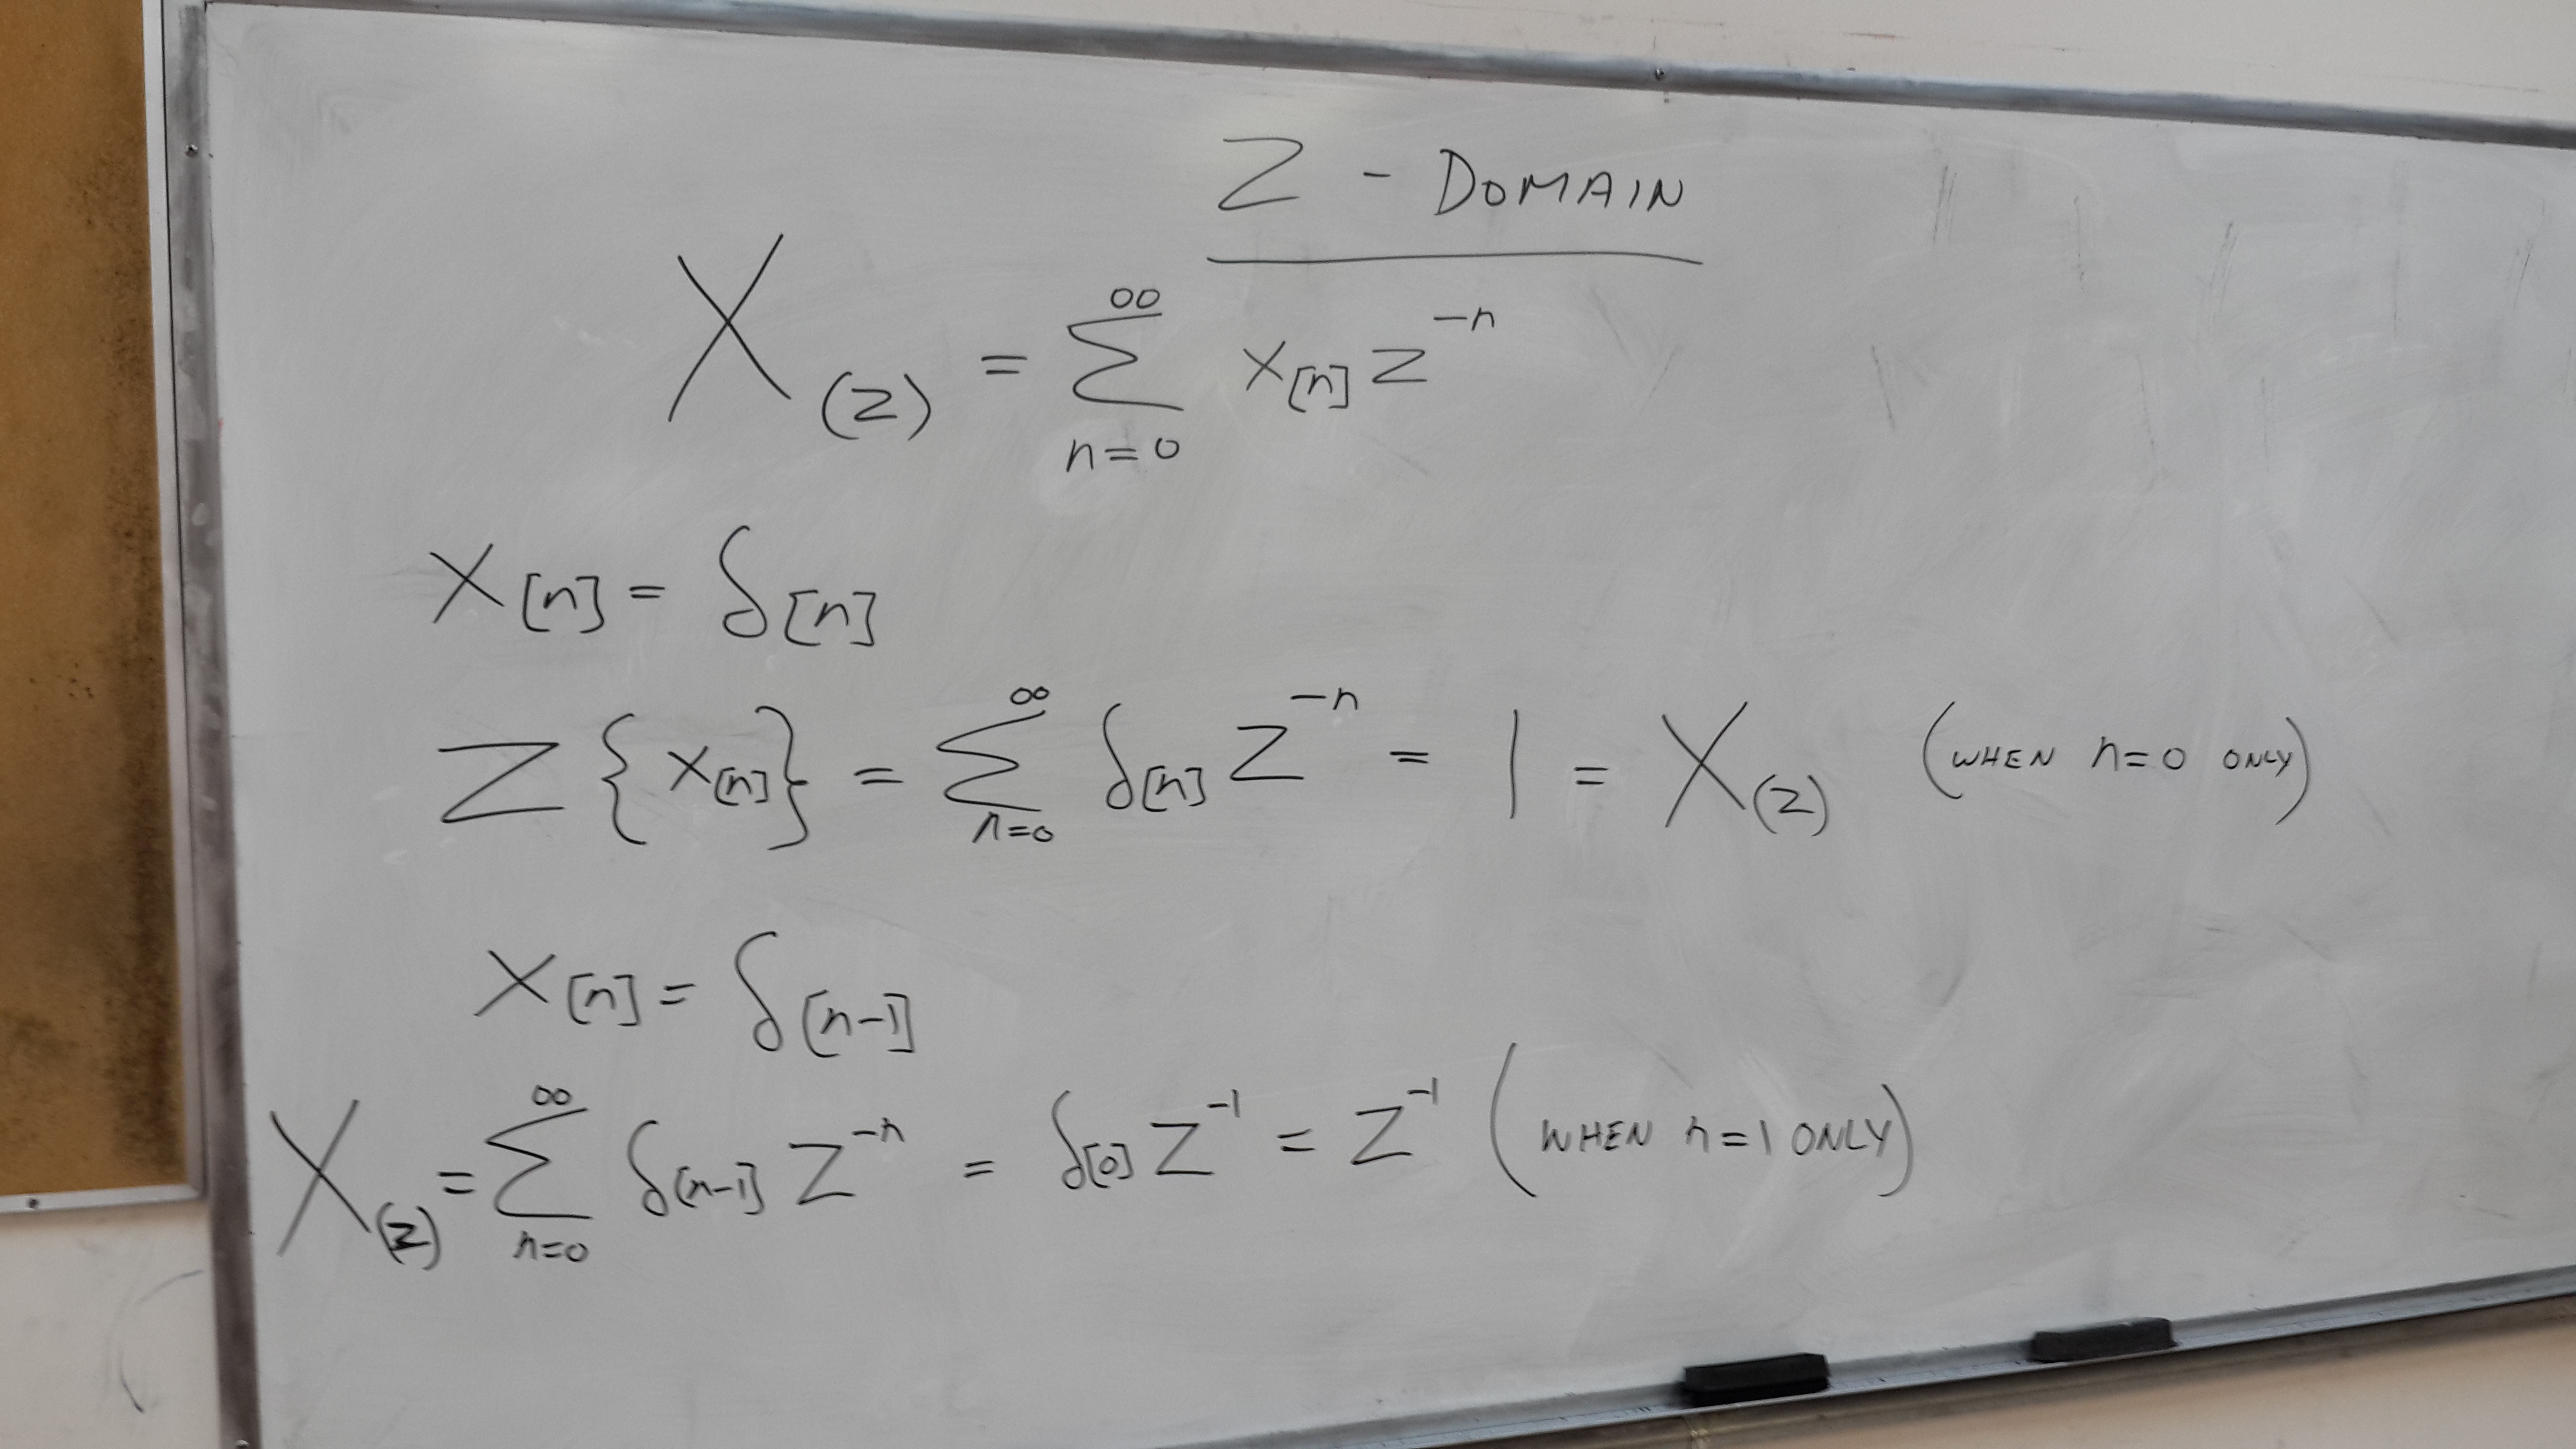 Z - DOMAIN
X(z) = ∑_{n=0}^{∞} x[n] z^{-n}
x[n] = δ[n]
Z{x[n]} = ∑_{n=0}^{∞} δ[n] z^{-n} = 1 = X(z) (WHEN n=0 ONLY)
x[n] = δ[n-1]
X(z) = ∑_{n=0}^{∞} δ[n-1] z^{-n} = δ[0] z^{-1} = z^{-1} (WHEN n=1 ONLY)